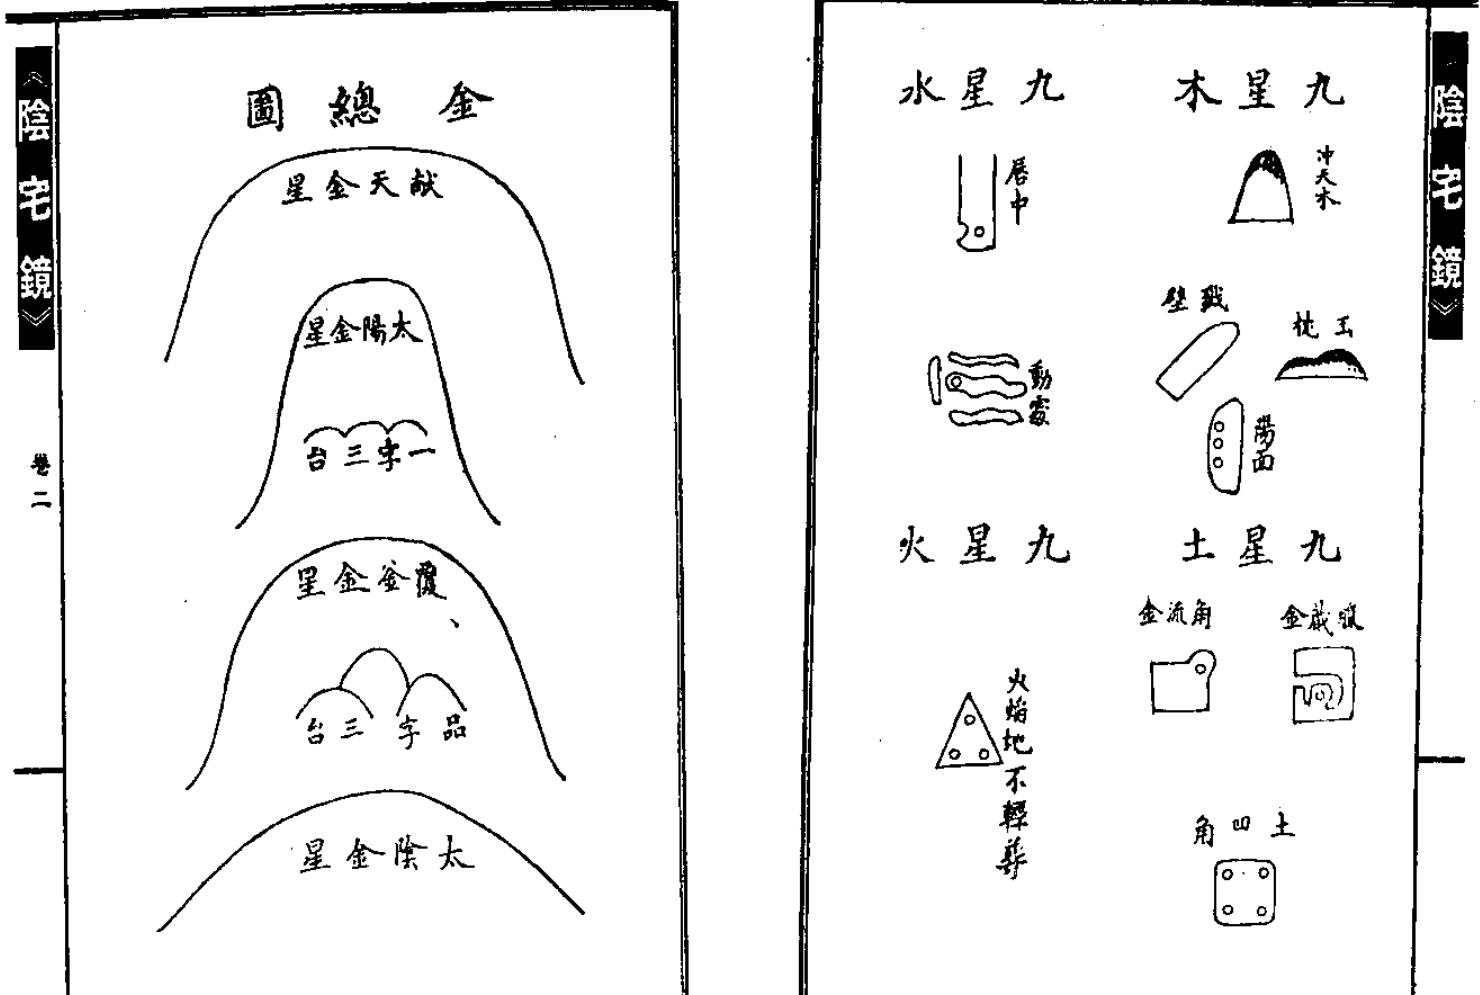 《陰宅鏡》
九星木
冲天木
玉枕
戬壁
陽面
九星水
唇中
動處
九星土
腹藏金
角流金
土凹角
九星火
火焰地不輕葬
《陰宅鏡》
卷二
金總圖
献天金星
太陽金星
一字三台
覆釜金星
品字三台
太陰金星